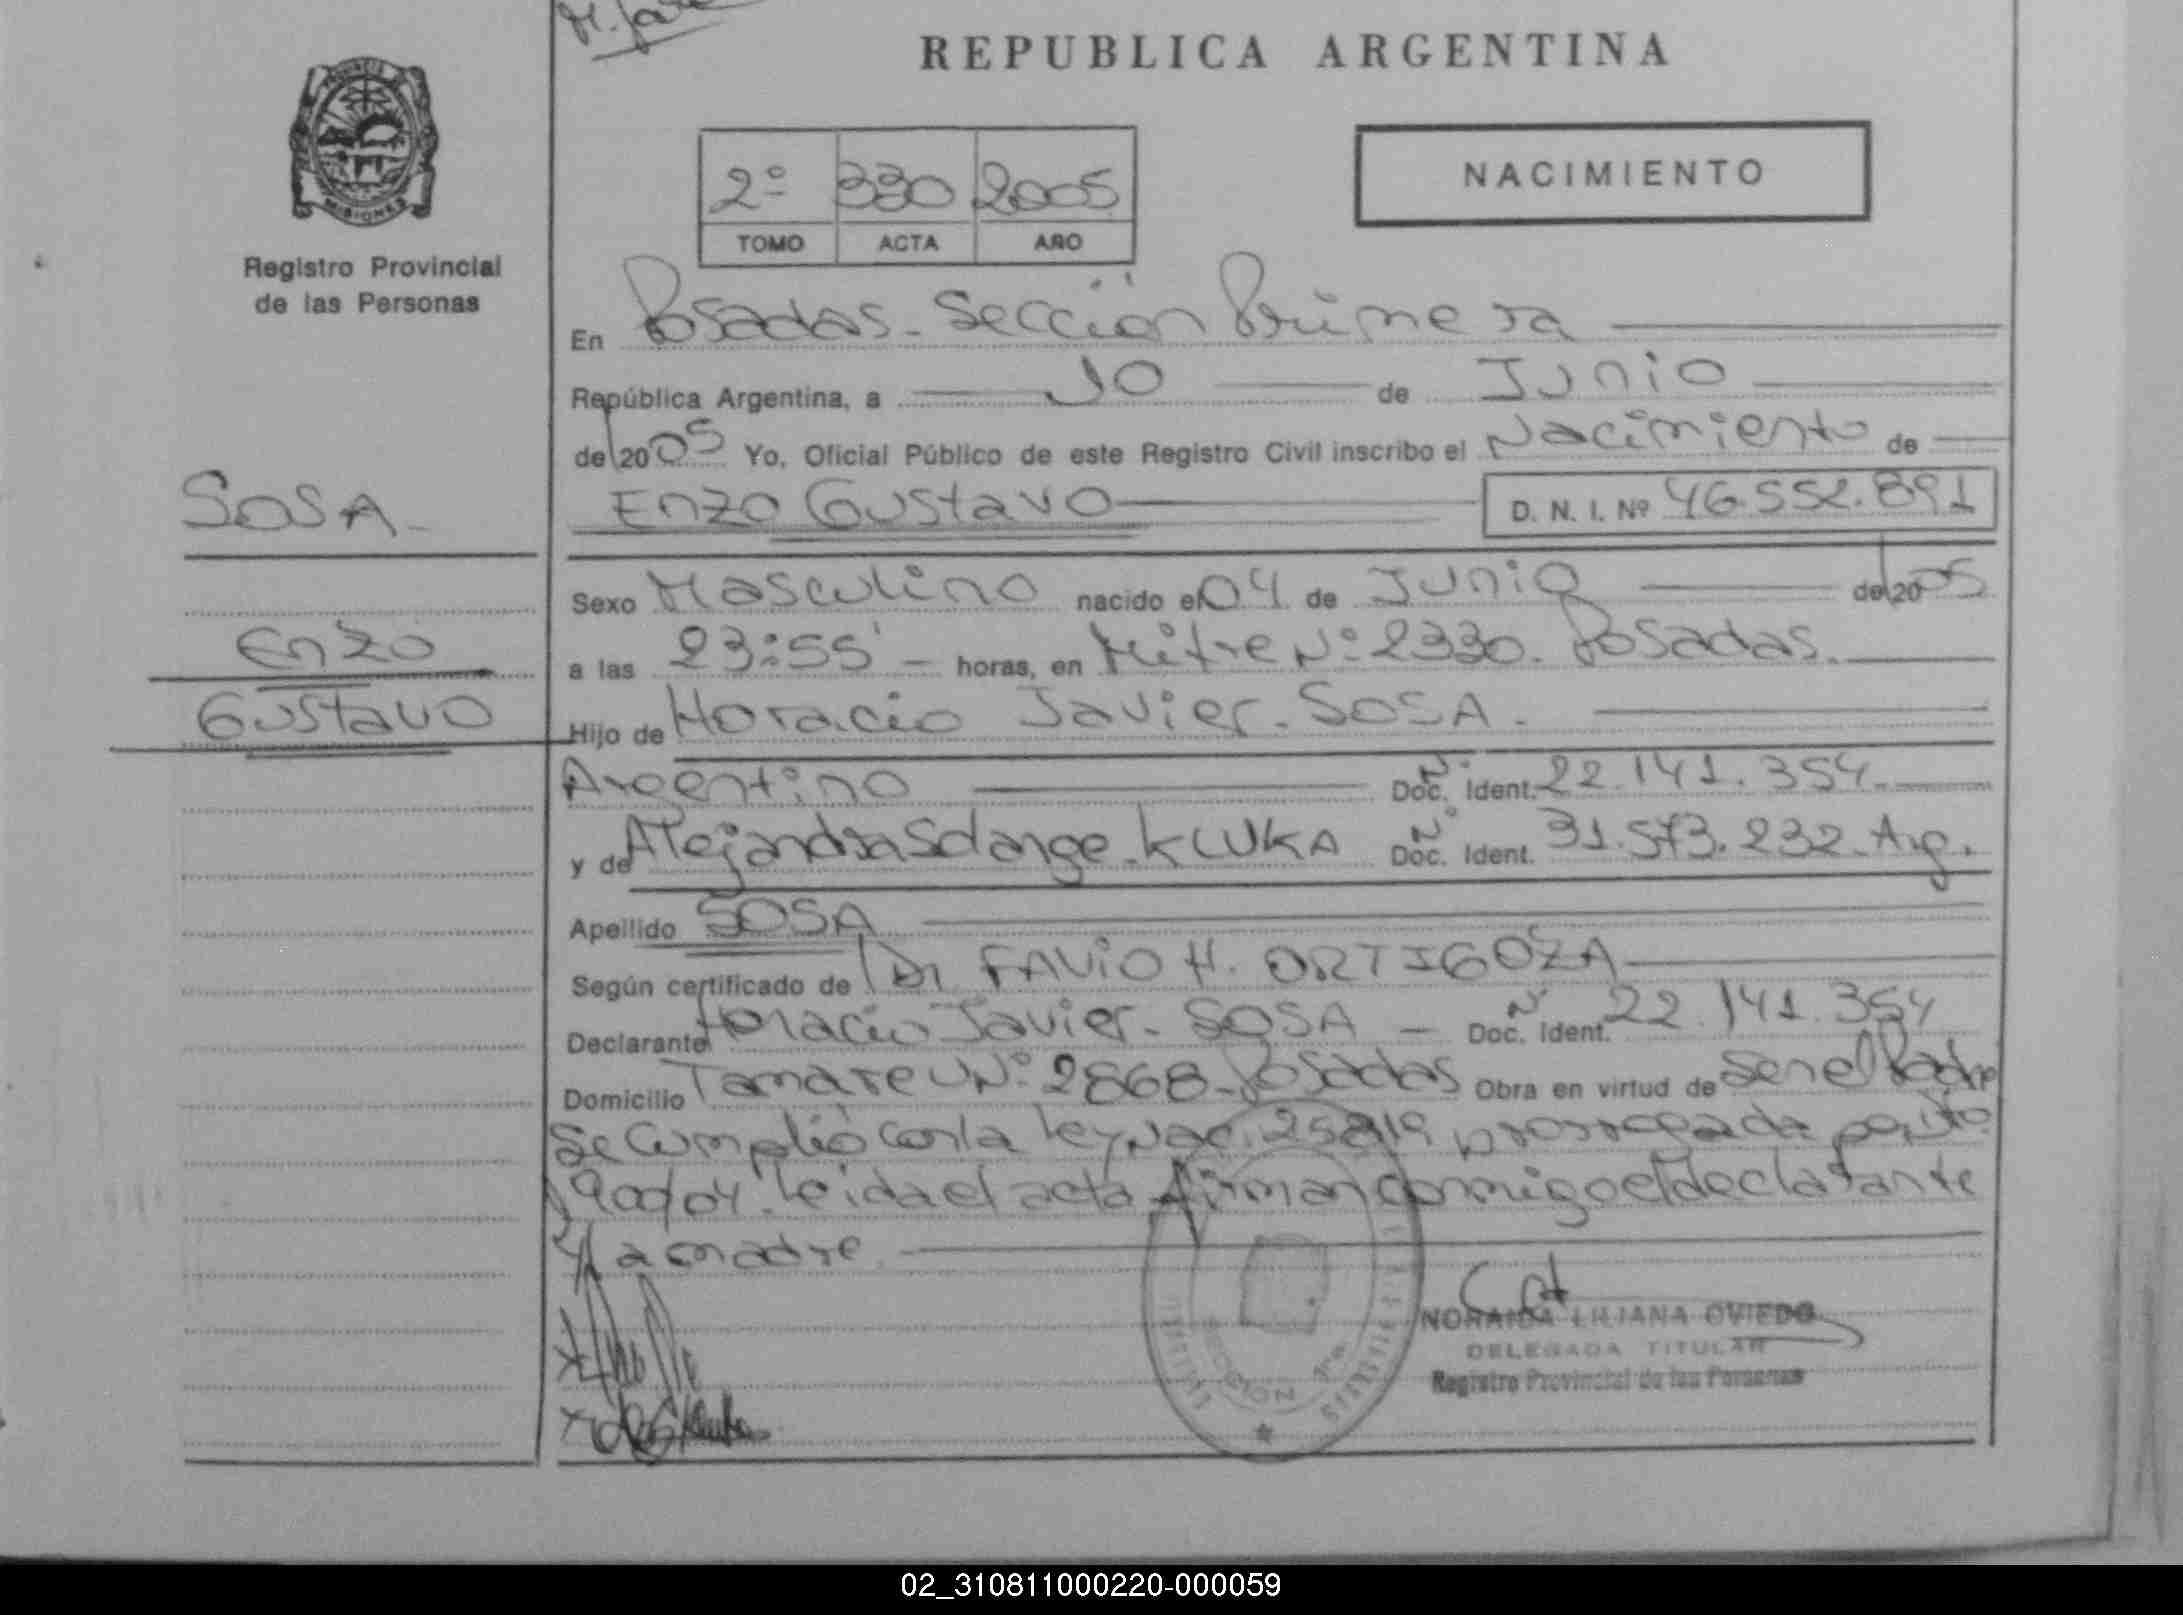 REPUBLICA ARGENTINA
PROVINCIA
MISIONES
Registro Provincial
de las Personas
2º 330 2005
TOMO ACTA AÑO
NACIMIENTO
En Posadas - Sección Primera
República Argentina, a 10 de Junio
del 2005 Yo, Oficial Público de este Registro Civil inscribo el Nacimiento de
Enzo Gustavo D. N. I. Nº 46.552.891
SOSA -
Enzo
Gustavo
Sexo Masculino nacido el 04 de Junio del 2005
a las 23:55' - horas, en Mitre Nº 2330. Posadas.
Hijo de Horacio Javier - SOSA -
Argentino Nº Doc. Ident. 22.141.354 -
y de Alejandra Solange - KLUKA Nº Doc. Ident. 31.573.232 - Arg.
Apellido SOSA
Según certificado de Dr FAVIO H. ORTIGOZA
Declarante Horacio Javier - SOSA - Nº Doc. Ident. 22.141.354
Domicilio Tamareu Nº 2868 - Posadas Obra en virtud de ser el Padre
Se Cumplió con la Ley Nac. 25819 prorrogada por Dto
1900/04. Leida el acta firman conmigo el declarante
y la madre
SECCION 1ra.
NORAIDA LILIANA OVIEDO
DELEGADA TITULAR
Registro Provincial de las Personas
02_310811000220-000059